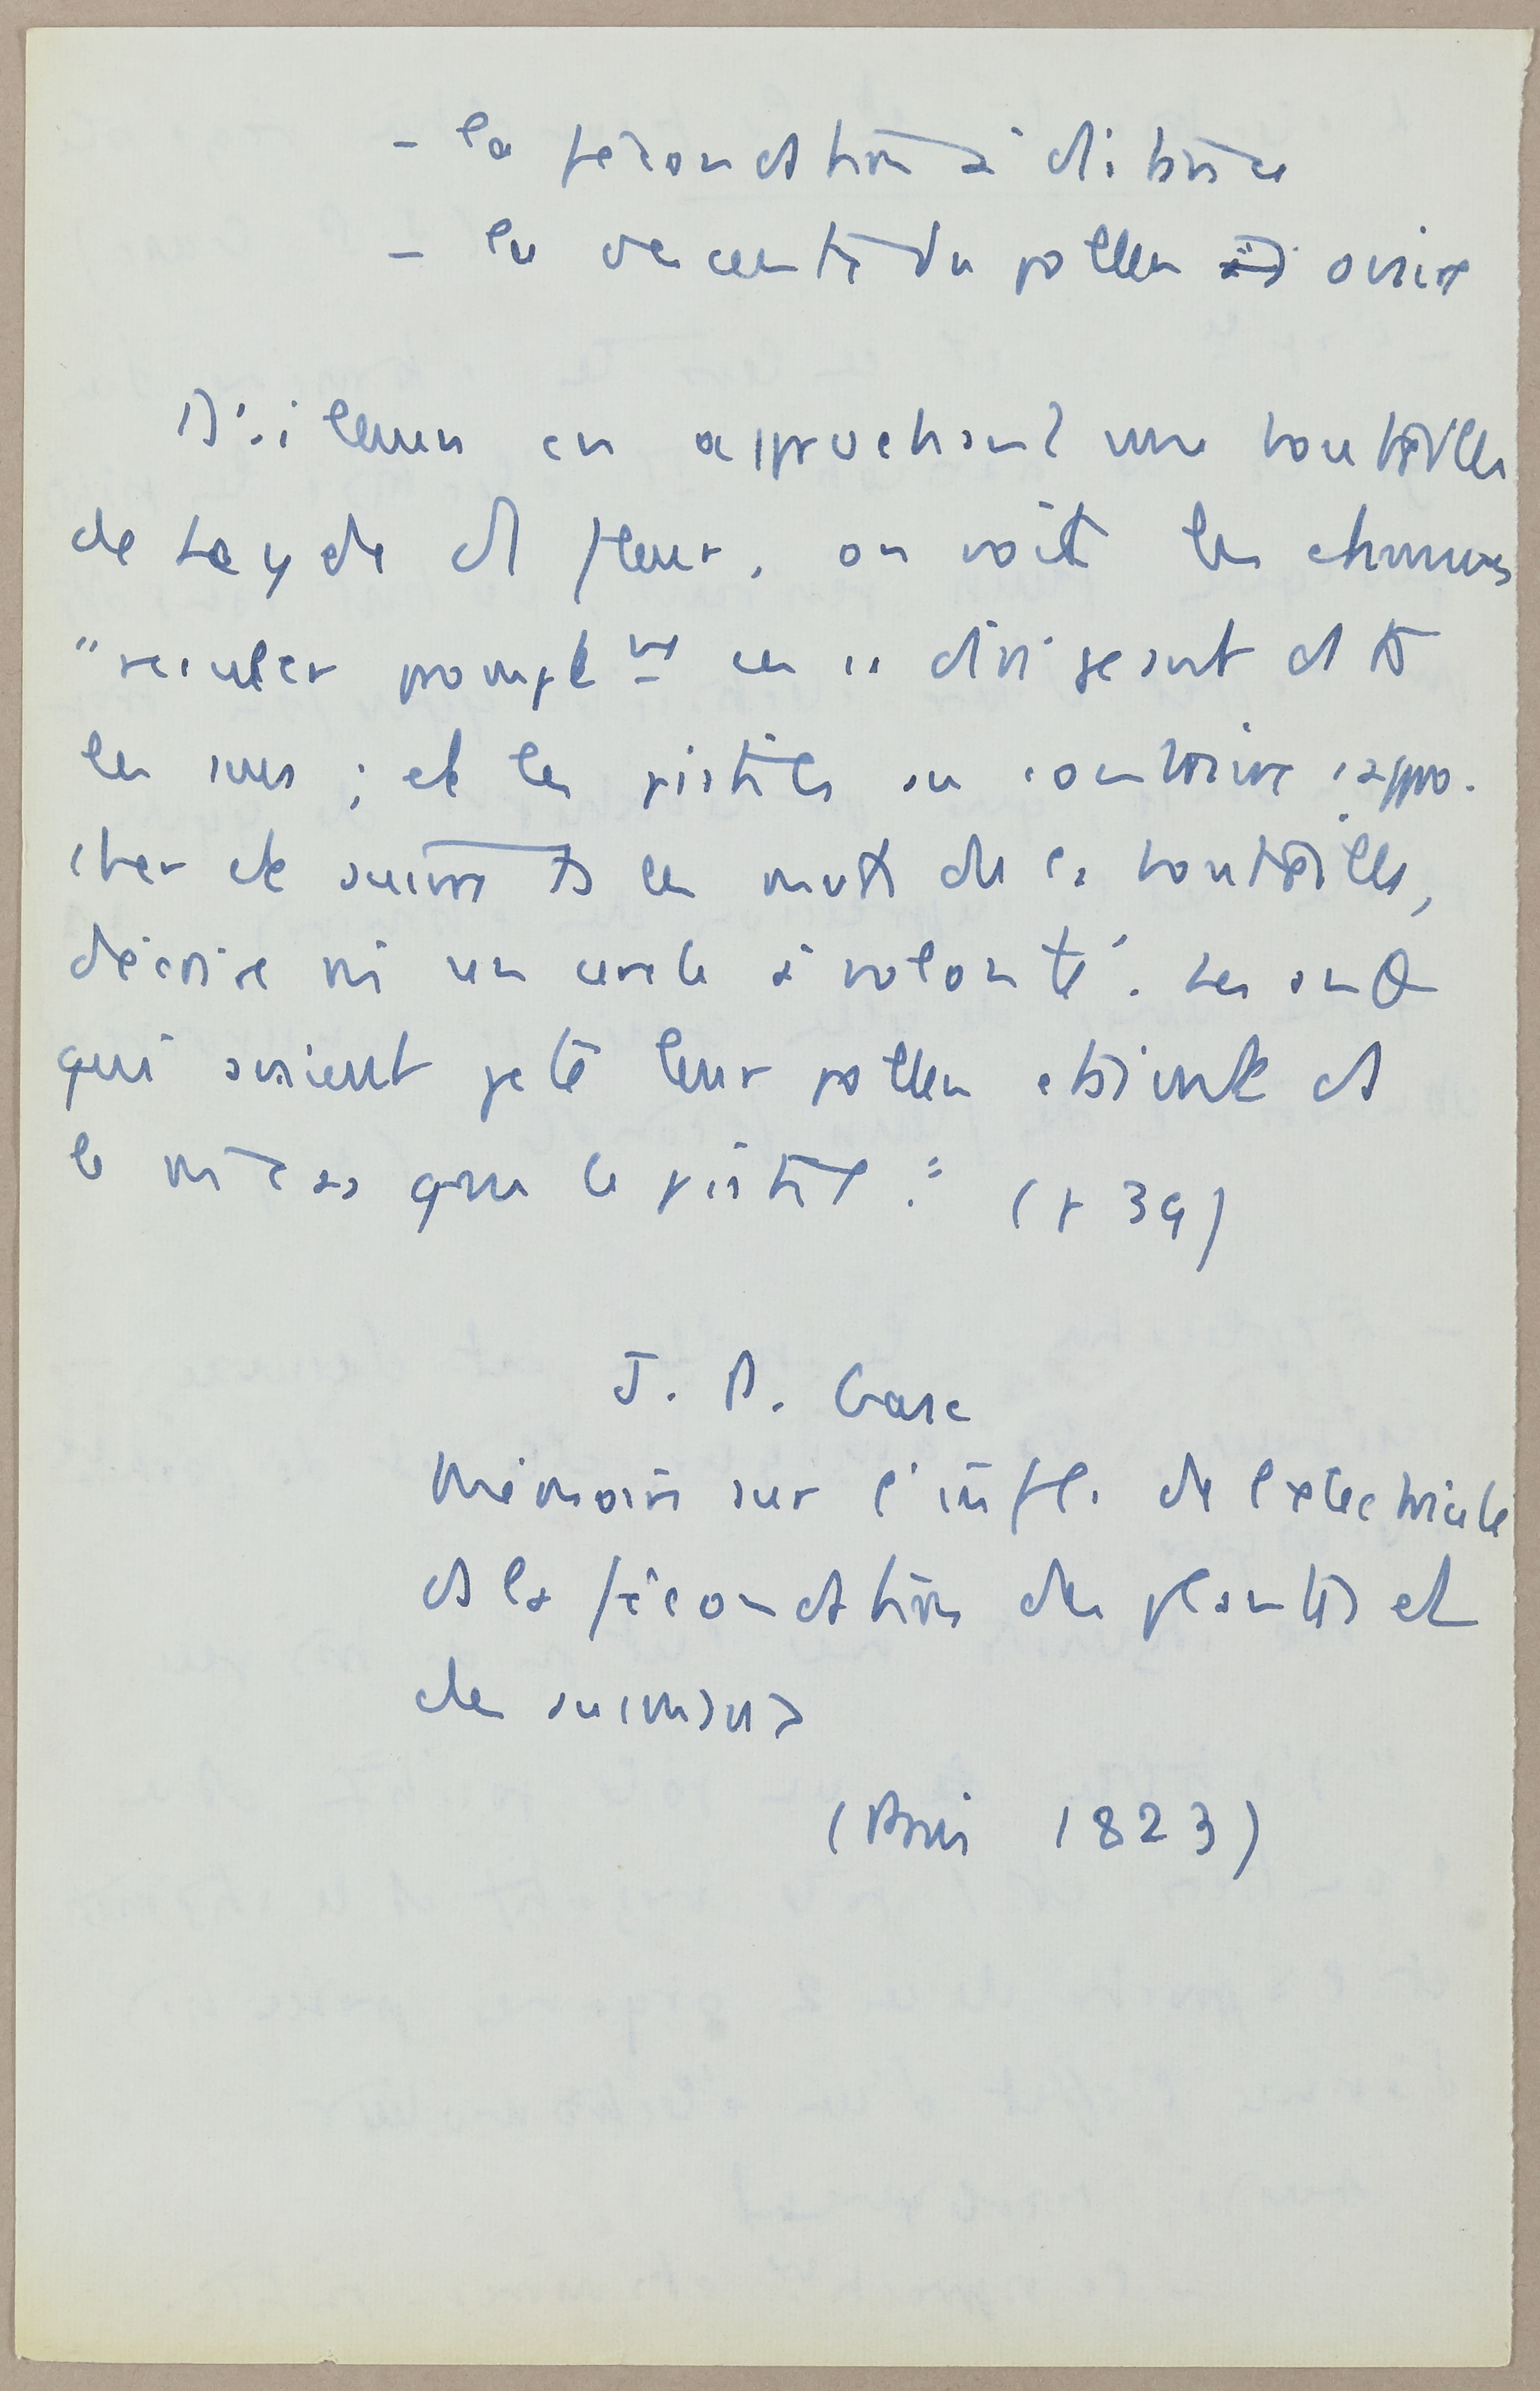 - la fécondation à distance
- la descente du pollen ovaire
D'ailleurs en approchant une bouteille
de Leyde d fleur, on voit les étamines
"reculer prompt^mt en se dirigeant d ts
les sens ; et les pistils au contraire s'appro.
cher et suivre ts les mvts de la bouteille,
décrire mm un cercle à volonté. Les anth
qui avaient jeté leur pollen étaient ds
le même cas que le pistil." (p 39)
J. P. Gasc
Mémoire sur l'infl. de l'électricité
ds la fécondation des plantes et
des animaux
(Paris 1823)